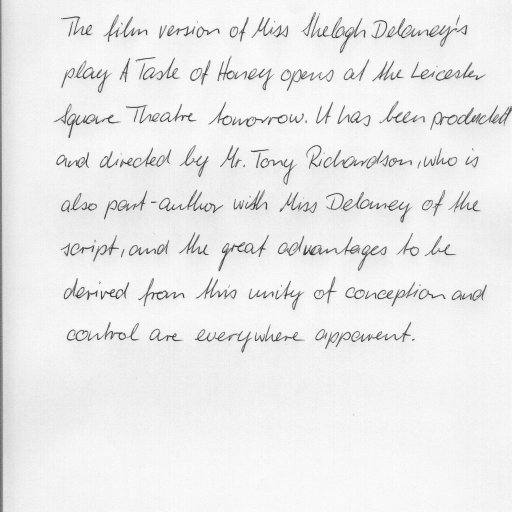 The film version of Miss Shelagh Delaney's
play A Taste of Honey opens at the Leicester
Square Theatre tomorrow. It has been produced
and directed by Mr. Tony Richardson, who is
also part-author with Miss Delaney of the
script, and the great advantages to be
derived from this unity of conception and
control are everywhere apparent.